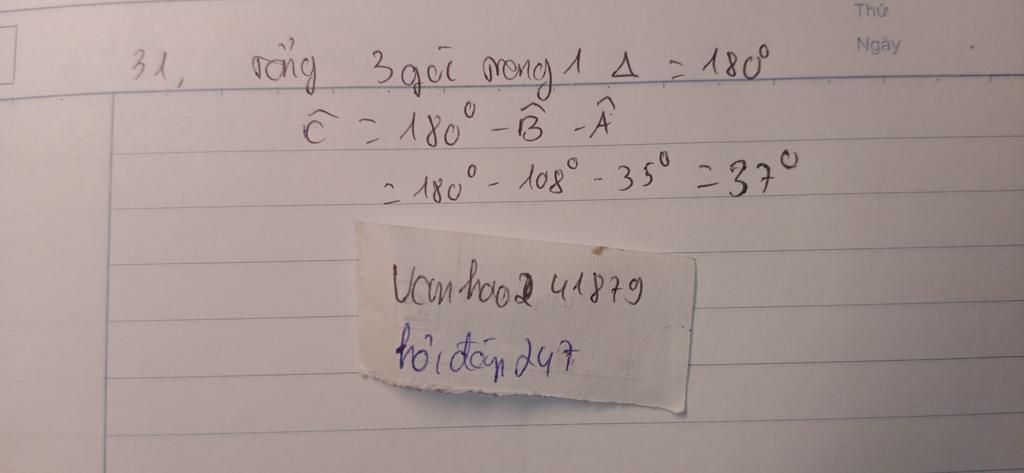 Thứ
Ngày
31, tổng 3 góc trong 1 Δ = 180⁰
Ĉ = 180⁰ - B̂ - Â
= 180⁰ - 108⁰ - 35⁰ = 37⁰
Vanhao241879
hỏi đáp 247